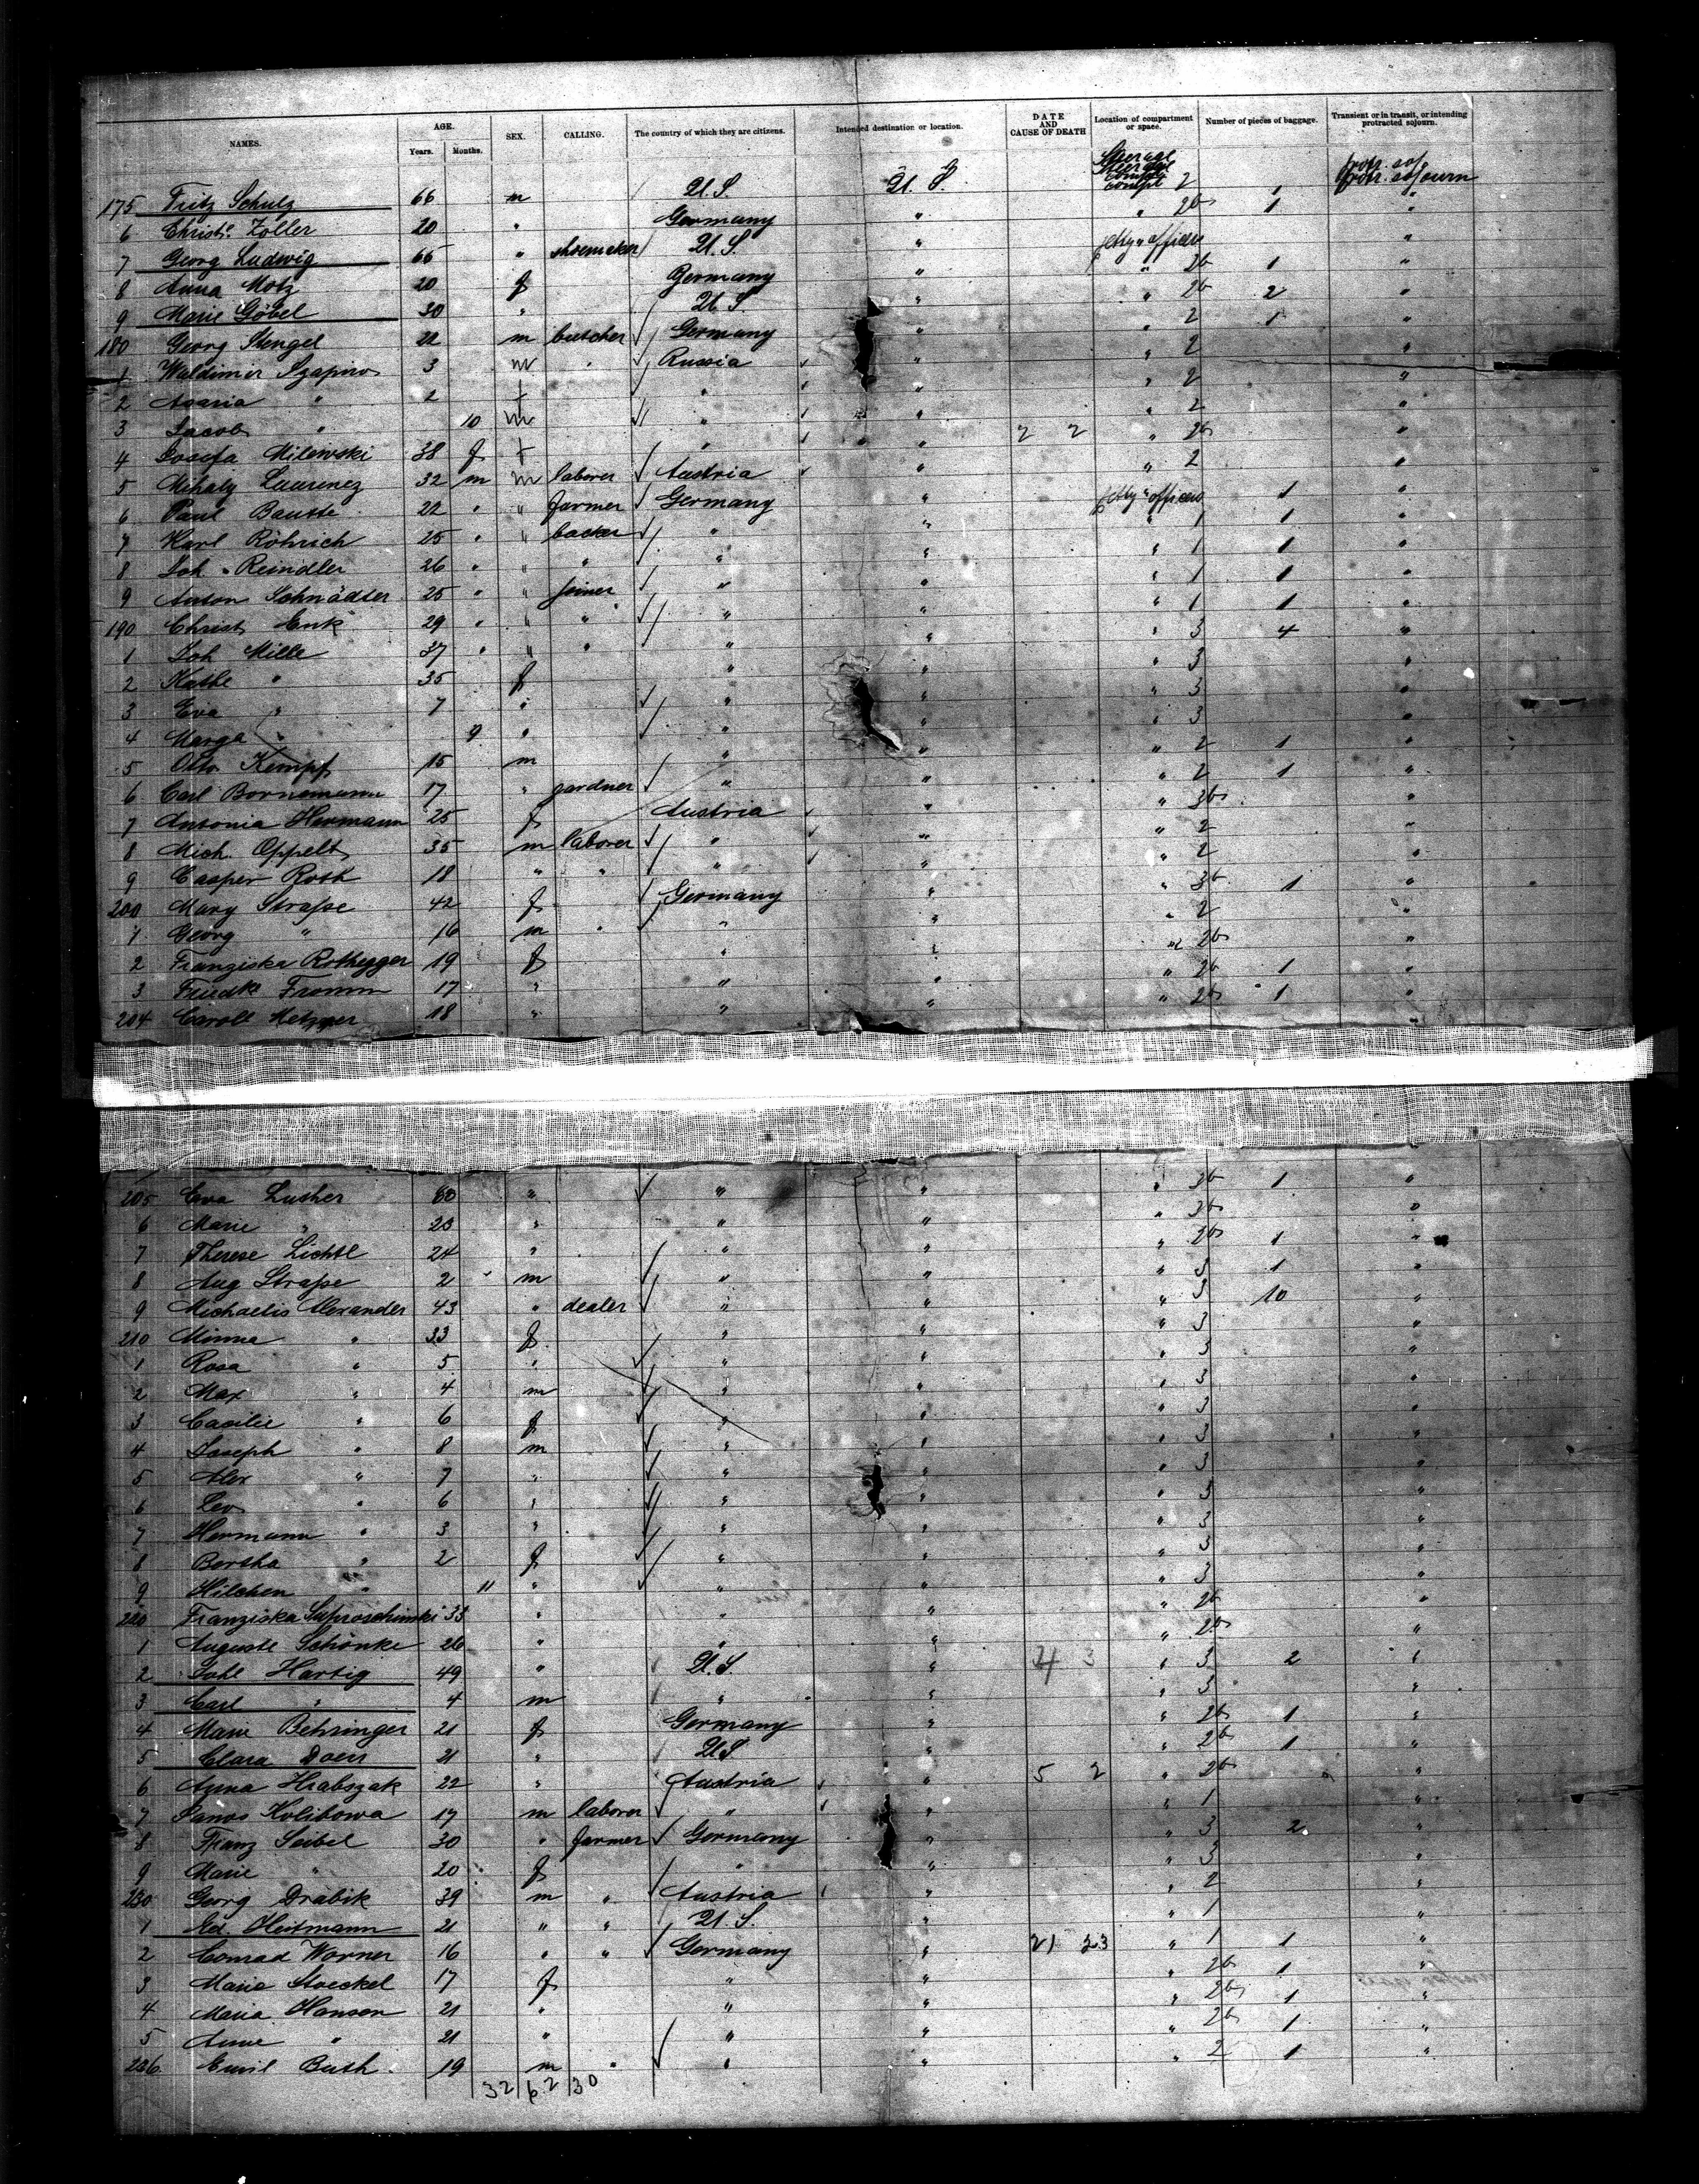 NAMES. AGE. Years. Months. SEX. CALLING. The country of which they are citizens. Intended destination or location. DATE AND CAUSE OF DEATH Location of compartment or space. Number of pieces of baggage. Transient or in transit, or intending protracted sojourn.
175 Fritz Schulz 66 m U.S. U.S. Steerage compt 2 1 protr. sojourn
6 Christ. Zoller 20 " Germany " " 2b 1 "
7 Georg Ludwig 66 " shoemaker U.S. " petty officers "
8 Anna Motz 20 f Germany " " 2b 1 "
9 Marie Göbel 30 " U.S. " " 2b 2 "
180 Georg Stengel 22 m butcher Germany " 2 1 "
1 Waldimir Szapiro 3 m " Russia " " 2 "
2 Asaria " 2 f " " " 2 "
3 Jacob " 10 m " " " 2 "
4 Josefa Milewski 38 f f " " 2 2 " 2b "
5 Mihaly Laurenez 32 m m laborer Austria " " 2 "
6 Paul Bausse 22 " " farmer Germany " petty officers 1 "
7 Karl Röhrich 25 " " backer " " " 1 1 "
8 Joh. Reindler 26 " " " " " " 1 1 "
9 Anton Schnädter 25 " " joiner " " " 1 1 "
190 Christ Enk 29 " " " " " " 1 1 "
1 Joh Mille 37 " " " " " " 3 4 "
2 Kathe " 35 f " " " 3 "
3 Eva " 7 " " " " 3 "
4 Marga " 9 " " " " 3 "
5 Otto Kempf 15 m " " " 2 1 "
6 Carl Bornemann 17 " gardner " " " 2 1 "
7 Antonia Hermann 25 f Austria " " 3b "
8 Mich. Oppelt 35 m laborer " " " 2 "
9 Casper Roth 18 " " " " " 2 "
200 Mary Straße 42 f Germany " " 3b 1 "
1 Georg " 16 m " " " " 2 "
2 Franziska Rothegger 19 f " " " 2b "
3 Friedk Fromm 17 " " " " 2b 1 "
204 Caroll Metzger 18 " " " " 2b 1 "
205 Eva Luther 60 " " " " 3b 1 "
6 Marie " 23 " " " " 3b "
7 Therese Lichtl 24 " " " " 2b 1 "
8 Aug Straße 2 m " " " 3 1 "
9 Michaelis Alexander 43 " dealer " " " 3 10 "
210 Minna " 33 f " " " 3 "
1 Rosa " 5 " " " " 3 "
2 Max " 4 m " " " 3 "
3 Cacilie " 6 f " " " 3 "
4 Joseph " 8 m " " " 3 "
5 Alex " 7 " " " " 3 "
6 Leo " 6 " " " " 3 "
7 Hermann " 3 " " " " 3 "
8 Bertha " 2 f " " " 3 "
9 Hilchen " 11 " " " " 3 "
220 Franziska Suproschinski 33 " " " " 2b "
1 Auguste Schönke 26 " " " " 2b "
2 Johl Hartig 49 " U.S. " 4 3 " 3 2 "
3 Carl " 4 m " " " 3 "
4 Marie Behringer 21 f Germany " " 2b 1 "
5 Clara Doen 21 " U.S. " " 2b 1 "
6 Anna Hrabszak 22 " Austria " 5 2 " 2b "
7 Janos Kolibowa 17 m laborer " " " 1 "
8 Franz Seibel 30 " farmer Germany " " 3 2 "
9 Marie " 20 f " " " 3 "
230 Georg Drabik 39 m " Austria " " 2 "
1 Ed. Heitmann 21 " " U.S. " " 1 "
2 Conrad Worner 16 " " Germany " 21 23 " 1 1 "
3 Marie Stoeckel 17 f " " " 2b 1 "
4 Maria Hanson 21 " " " " 2b 1 "
5 Anne " 21 " " " " 2b 1 "
236 Emil Buth 19 m " " " " 2 1 "
32 62 30